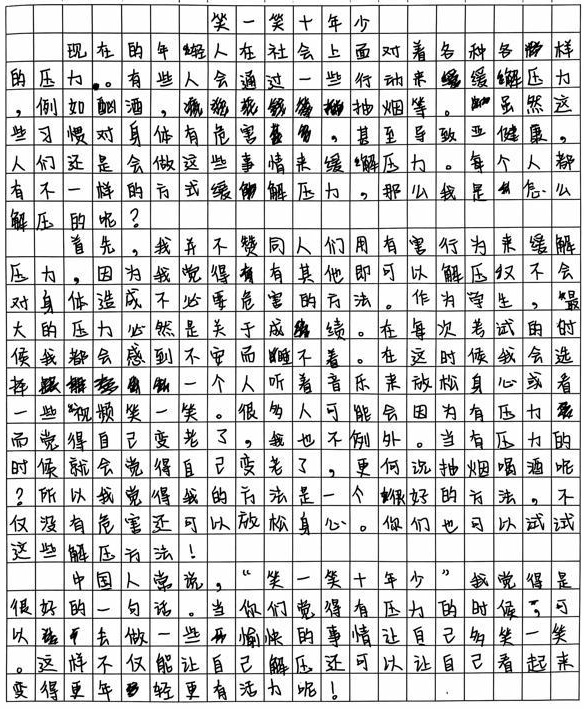 笑一笑十年少
现在的年轻人在社会上面对着各种各样
的压力。有些人会通过一些行动来缓解压力
，例如酗酒，抽烟等。虽然这
些习惯对身体有危害，甚至导致亚健康，
人们还是会做这些事情来缓解压力。每个人都
有不一样的方式缓解压力，那么我是怎么
解压的呢？
首先，我并不赞同人们用有害行为来缓解
压力，因为我觉得有其他即可以解压纹不会
对身体造成不必要危害的方法。作为学生，最
大的压力必然是关于成绩。在每次考试的时
候我都会感到不安而睡不着。在这时候我会选
择一个人听着音乐来放松身心或看
一些视频笑一笑。很多人可能会因为有压力
而觉得自己变老了，我也不例外。当有压力的
时候就会觉得自己变老了，更何况抽烟喝酒呢
？所以我觉得我的方法是一个很好的方法，不
仅没有危害还可以放松身心。你们也可以试试
这些解压方法！
中国人常说，“笑一笑十年少”我觉得是
很好的一句话。当你们觉得有压力的时候，可
以去做一些愉快的事情让自己多笑一笑
。这样不仅能让自己解压还可以让自己看起来
变得更年轻更有活力呢！